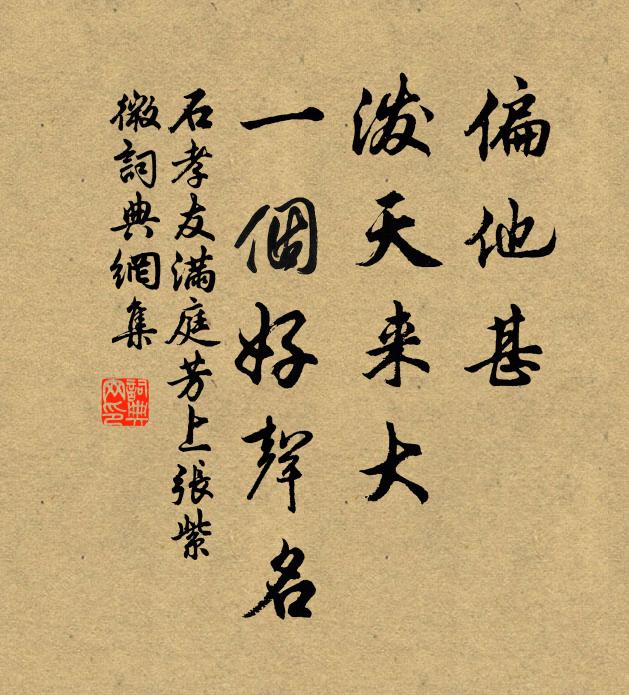 偏他甚
潑天来大
一個好聲名
石孝友滿庭芳上張紫
微詞典網集
詞典
网印